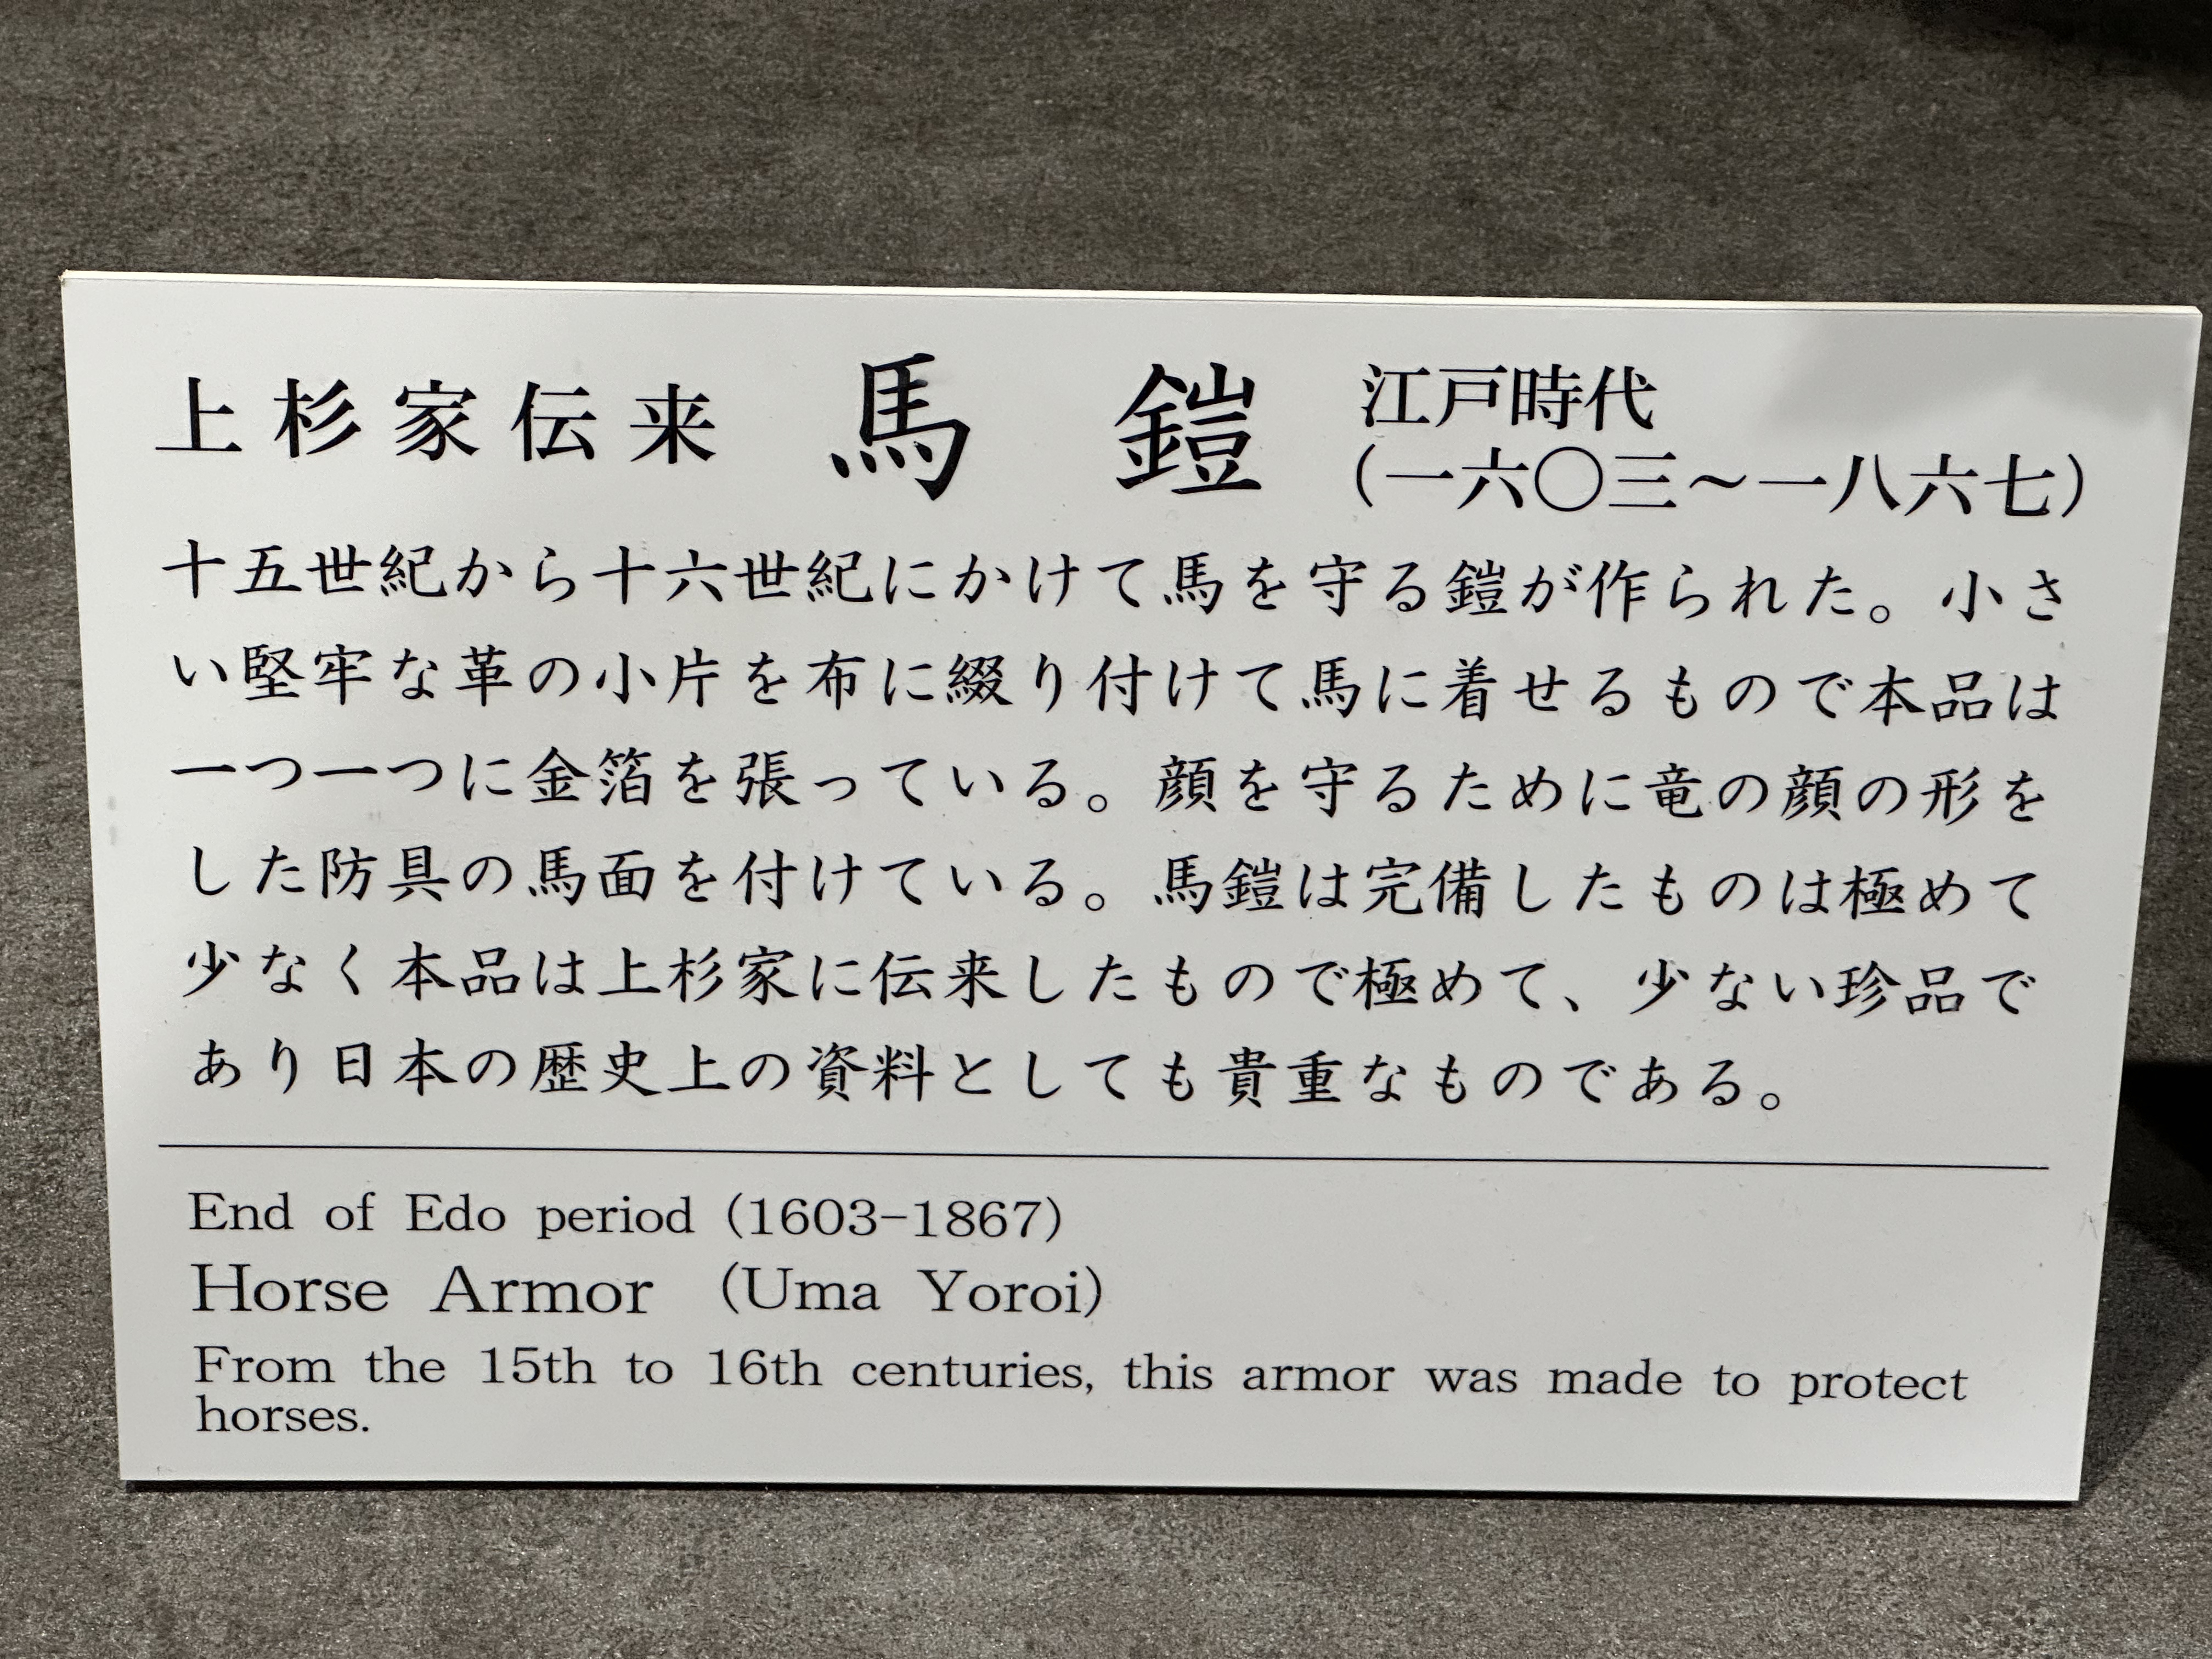 上杉家伝来 馬鎧 江戸時代
(一六〇三～一八六七)
十五世紀から十六世紀にかけて馬を守る鎧が作られた。小さ
い堅牢な革の小片を布に綴り付けて馬に着せるもので本品は
一つ一つに金箔を張っている。顔を守るために竜の顔の形を
した防具の馬面を付けている。馬鎧は完備したものは極めて
少なく本品は上杉家に伝来したもので極めて、少ない珍品で
あり日本の歴史上の資料としても貴重なものである。
End of Edo period (1603-1867)
Horse Armor (Uma Yoroi)
From the 15th to 16th centuries, this armor was made to protect
horses.